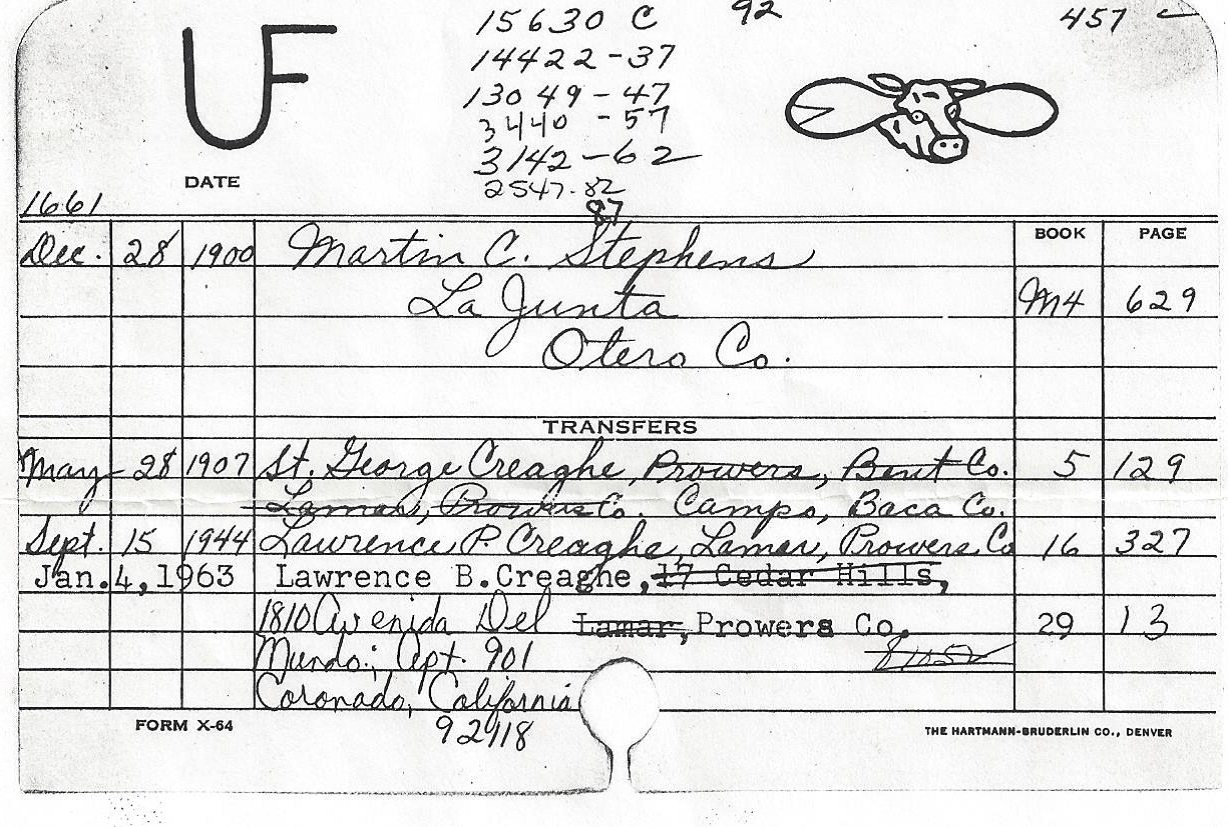 15630 C 92 457
UF
14422-37
13049-47
3440 -57
3142-62
DATE
2547-82
87
1661
Dec. 28 1900 Martin C. Stephens BOOK PAGE
La Junta M4 629
Otero Co.
TRANSFERS
May 28 1907 St. George Creaghe, Prowers, Bent Co. 5 129
Lamar, Prowers Co. Campo, Baca Co.
Sept. 15 1944 Lawrence P. Creaghe, Lamar, Prowers Co 16 327
Jan.4,1963 Lawrence B.Creaghe,17 Cedar Hills,
1810 Avenida Del Lamar,Prowers Co. 29 13
Mundo; Apt. 901 81052
Coronado, California
FORM X-64 92118 THE HARTMANN-BRUDERLIN CO., DENVER